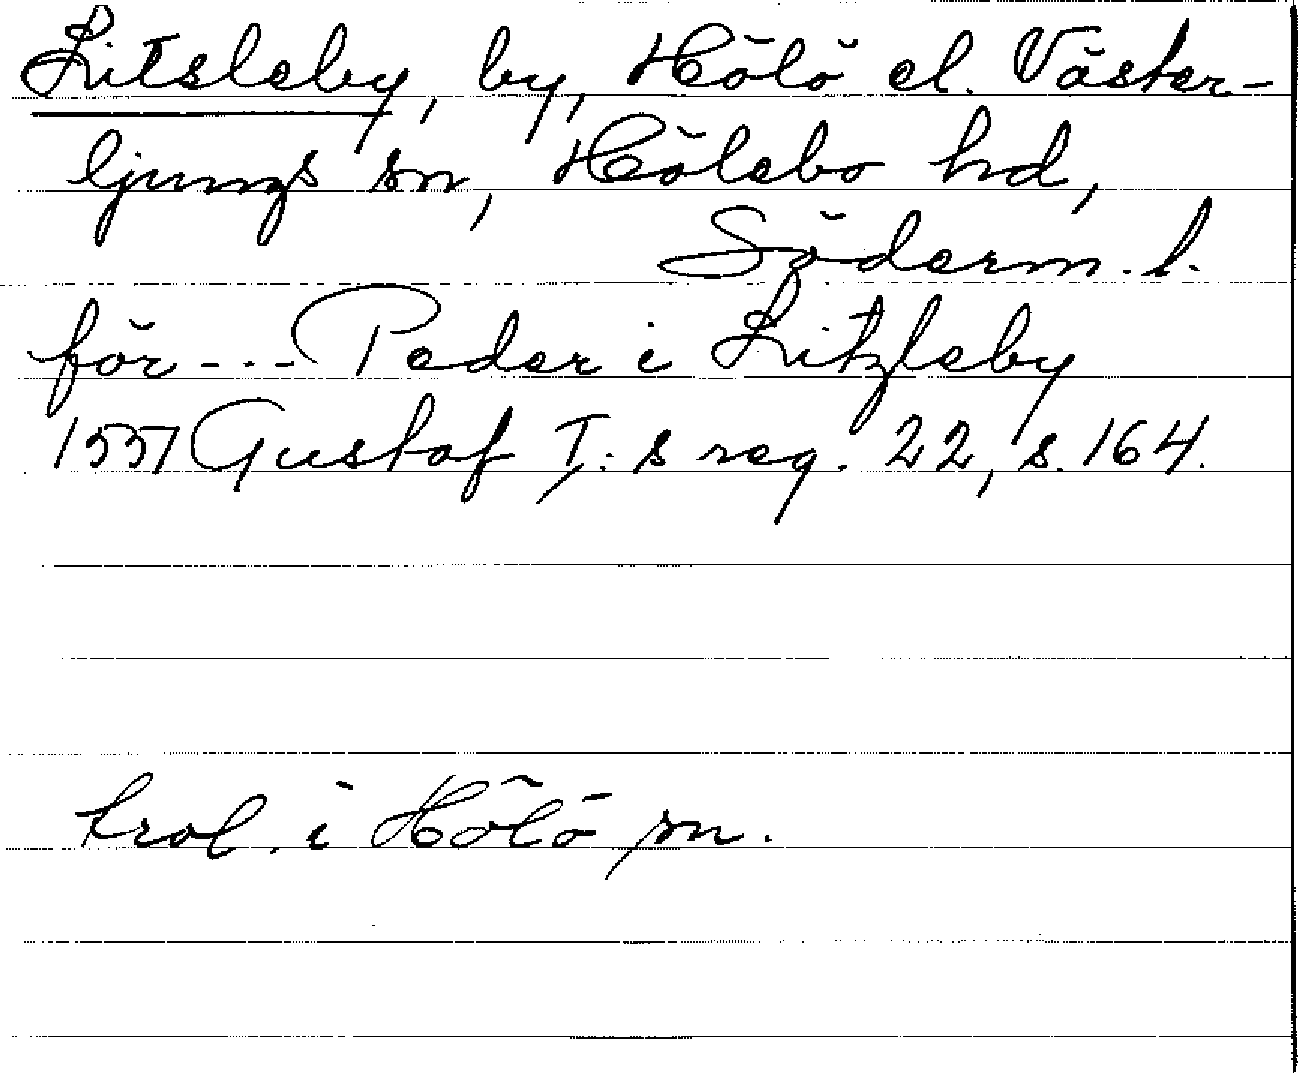 Litsleby, by, Hölö el. Väster-
ljungs sn, Hölebo hd,
Söderm. l.
för --- Peder i Litzleby
1551 Gustaf I:s reg. 22, s. 164.
trol. i Hölö sn.